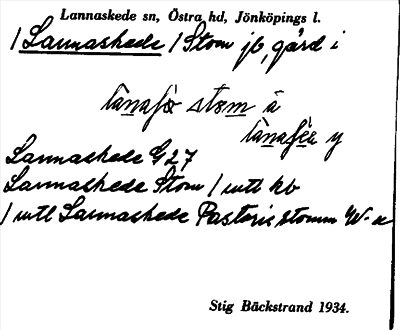 Lannaskede sn, Östra hd, Jönköpings l.
/ Lannaskede / Stom jb, gård i
stom ä
y
Lannaskede G 27
Lannaskede Stom / utl kb
/ utl Lannaskede Pastoris stomm W-a
Stig Bäckstrand 1934.